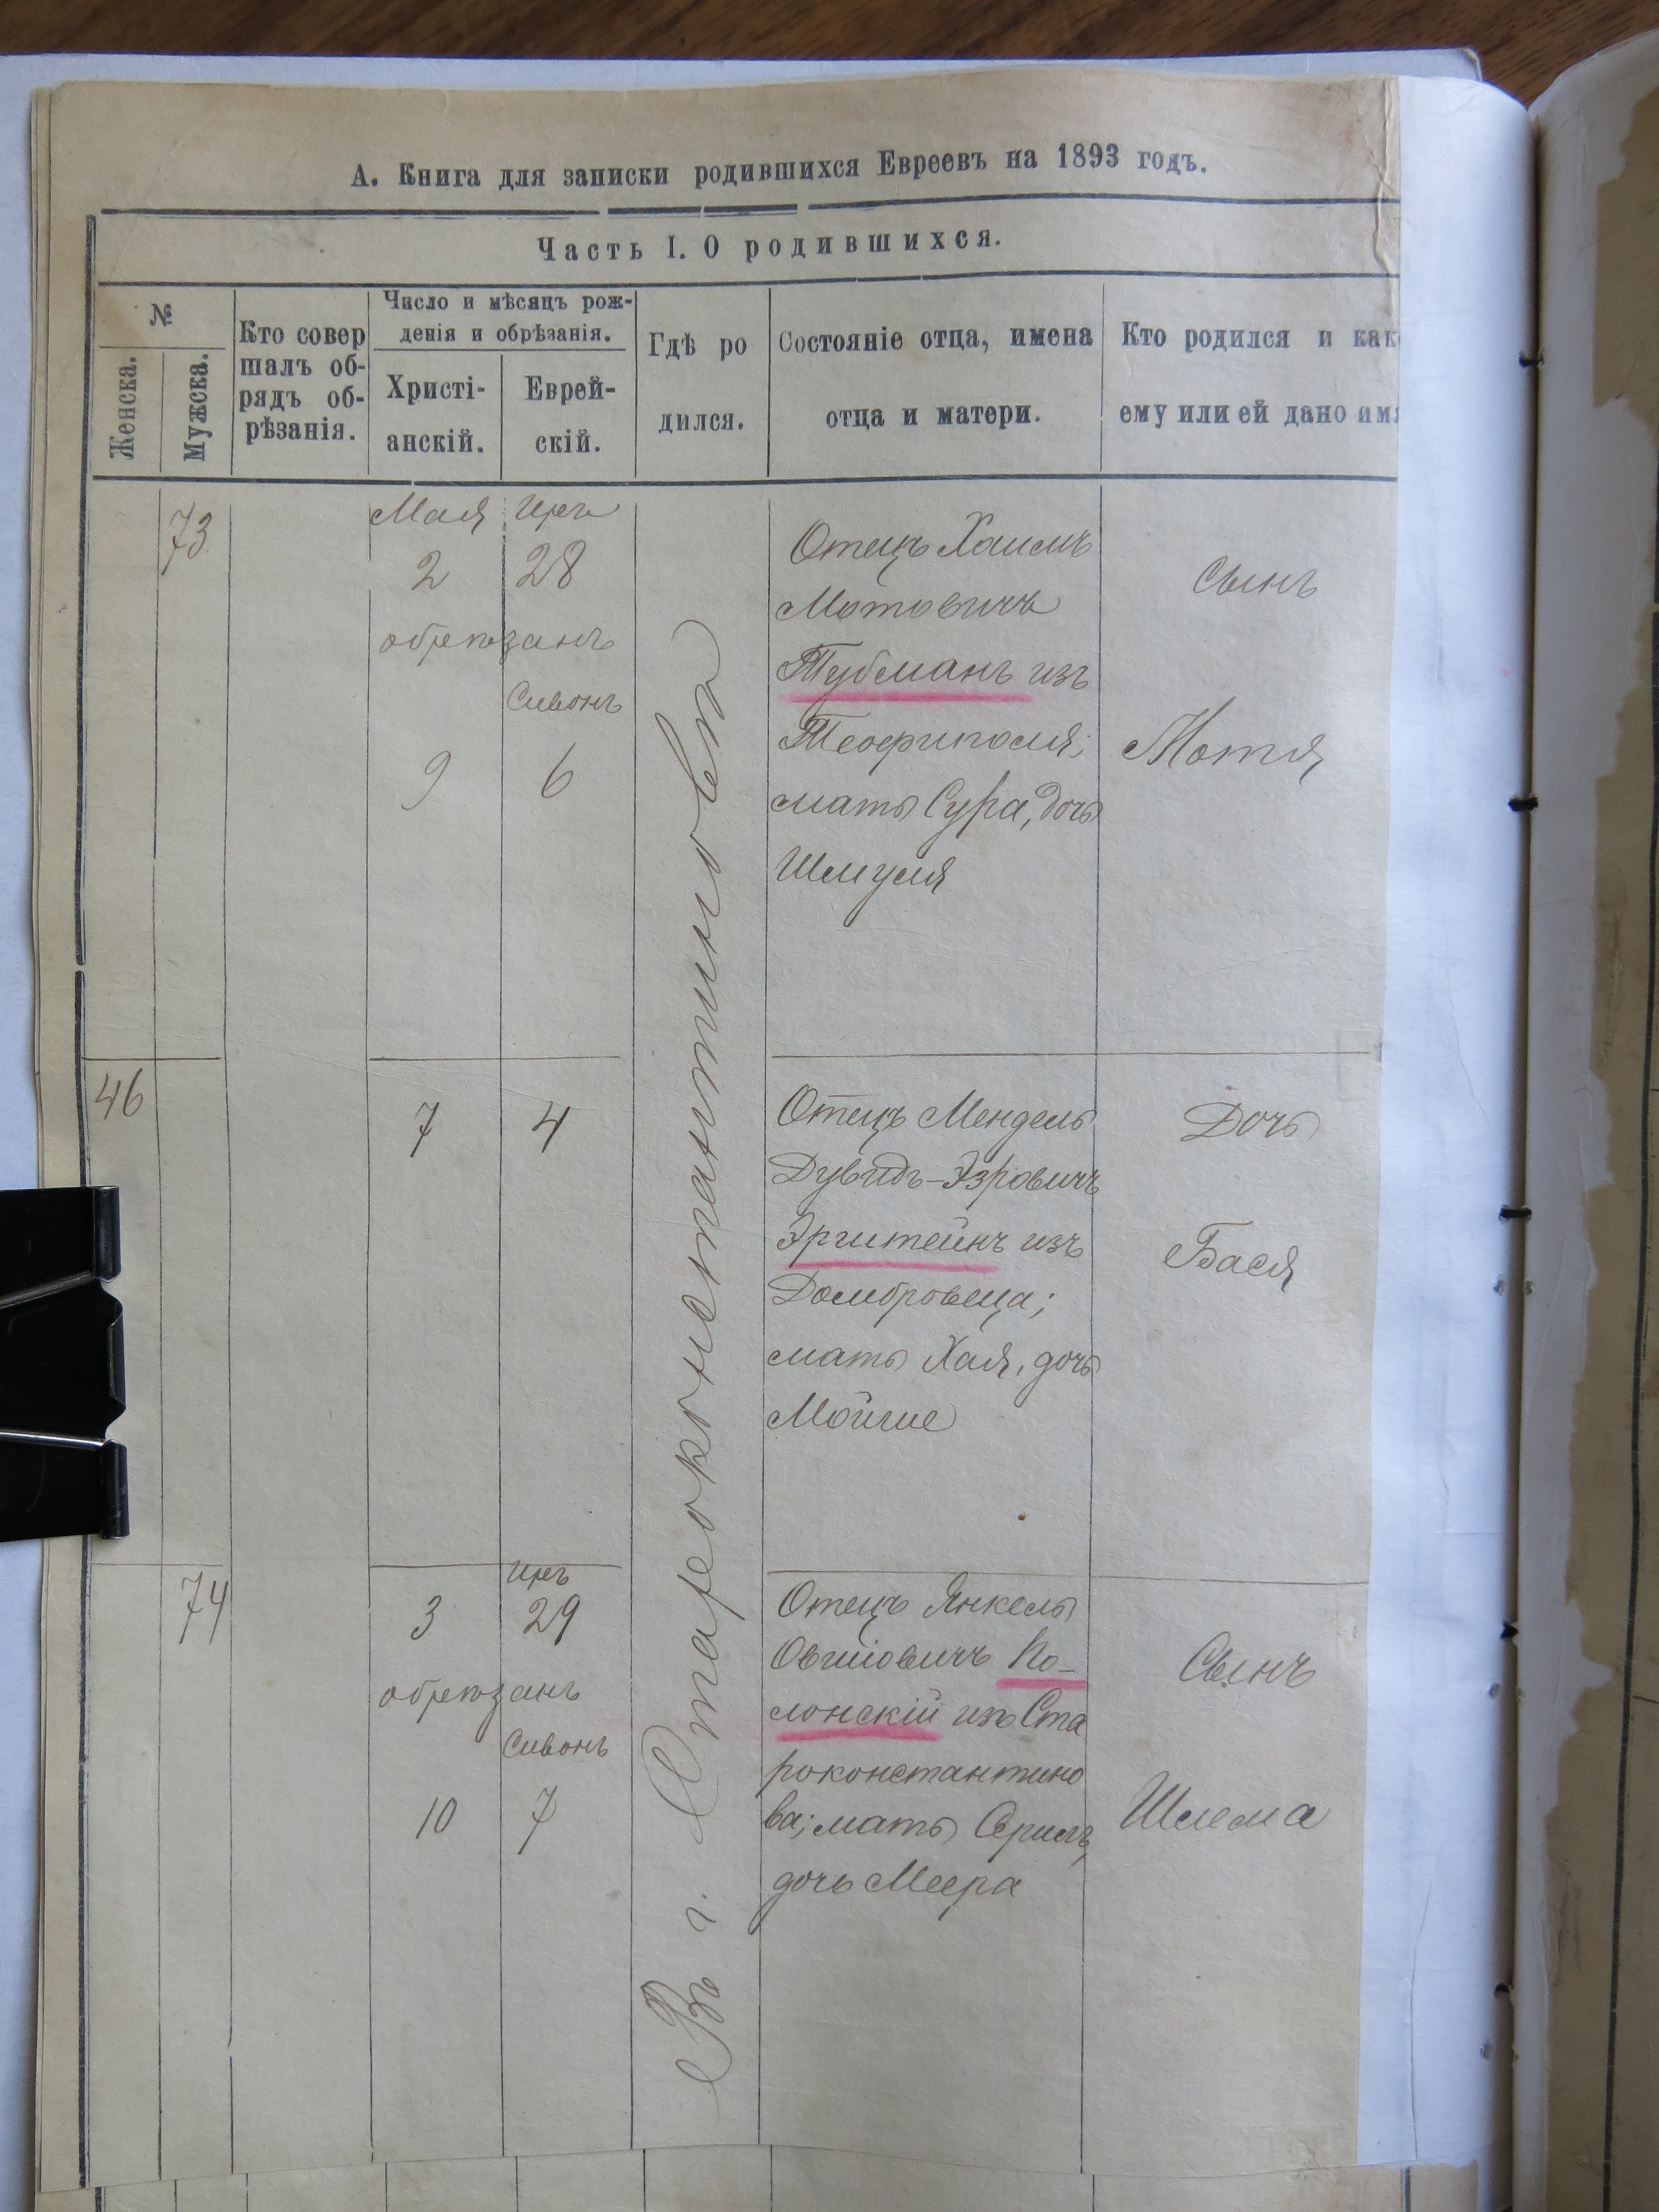 А. Книга для записки родившихся Евреевъ на 1893 годъ.
Часть I. О родившихся.
№
Женска.
Мужска.
Кто совер
шалъ об-
рядъ об-
рѣзанія.
Число и мѣсяцъ рож-
денія и обрѣзанія.
Христі-
анскій.
Еврей-
скій.
Гдѣ ро
дился.
Состояніе отца, имена
отца и матери.
Кто родился и как
ему или ей дано имя
73
Мая
2
28
обрѣзанъ
Сивонъ
9
6
Въ г. Староконстантиновѣ
Отецъ Хаимъ
Мотовичъ
Тубманъ изъ
Теофиполя;
мать Сура, дочь
Шмуля
Сынъ
Мотя
46
7
4
Отецъ Мендель
Дувидъ-Эзровичъ
Эрштейнъ изъ
Домбровеца;
мать Хая, дочь
Мойше
Дочь
Бася
74
Иръ
3
29
обрѣзанъ
Сивонъ
10
7
Отецъ Янкель
Овшіовичъ По-
лонскій изъ Ста
роконстантино
ва; мать
дочь Меера
Сынъ
Шлема